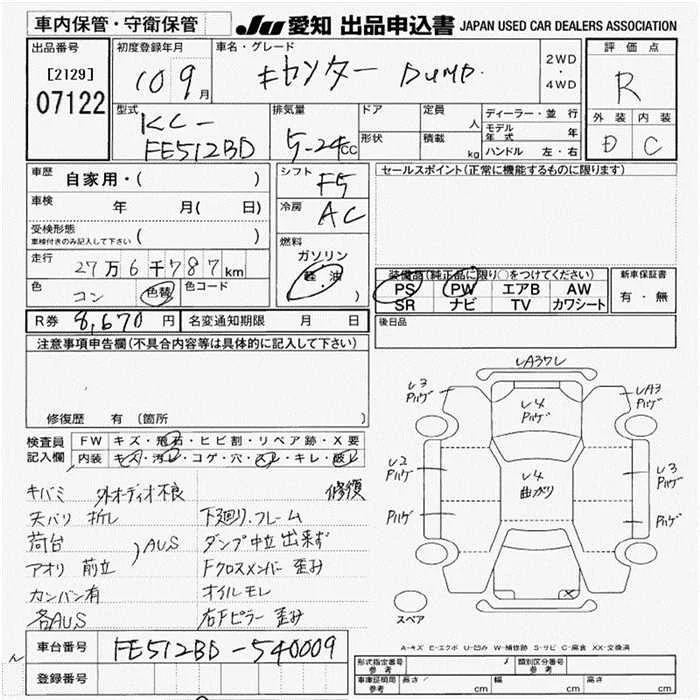 車内保管・守衛保管
JU 愛知 出品申込書 JAPAN USED CAR DEALERS ASSOCIATION
出品番号
[2129]
07122
初度登録年月
10 9月
車名・グレード
キャンター DUMP
2WD
・
4WD
評価点
R
外装 内装
D C
型式
KC-
FE512BD
排気量
5-24cc
ドア
形状
定員
人
積載
kg
ディーラー・並行
モデル年式 年
ハンドル 左・右
車歴
自家用・( )
車検
年 月( 日)
受検形態
車検付きのみ記入して下さい ( )
走行
27万6千787km
色
コン 色替 色コード
シフト
F5
冷房
AC
燃料
ガソリン
軽油
)
セールスポイント(正常に機能するものに限ります)
装備品(純正品に限り○をつけてください)
PS PW エアB AW
SR ナビ TV カワシート
新車保証書
有・無
後日品
R券 8,670円 名変通知期限 月 日
注意事項申告欄(不具合内容等は具体的に記入して下さい)
修復歴 有 〔箇所 〕
検査員
記入欄
FW キズ・飛石・ヒビ割・リペア跡・X要
内装 キズ・汚レ・コゲ・穴・スレ・キレ・破レ
キバミ 外オーディオ不良 修復
天バリ 折レ 下廻り、フレーム
荷台 AUS ダンプ中立出来ず
アオリ 前立 Fクロスメンバー 歪み
カンバン有 オイルモレ
各AUS 右Fピラー 歪み
車台番号 FE512BD-540009
登録番号
レA3ワレ
レ3
Pハゲ
レ4
Pハゲ
レA3
Pハゲ
レ2
Pハゲ
レ4
曲がり
レ3
Pハゲ
Pハゲ
Pハゲ
スペア
A-キズ E-エクボ U-凹み W-補修跡 S-サビ C-腐食 XX-交換済
形式指定番号
参考
類別区分番号
参考
車庫証明用
参考
長さ cm 幅 cm 高さ cm